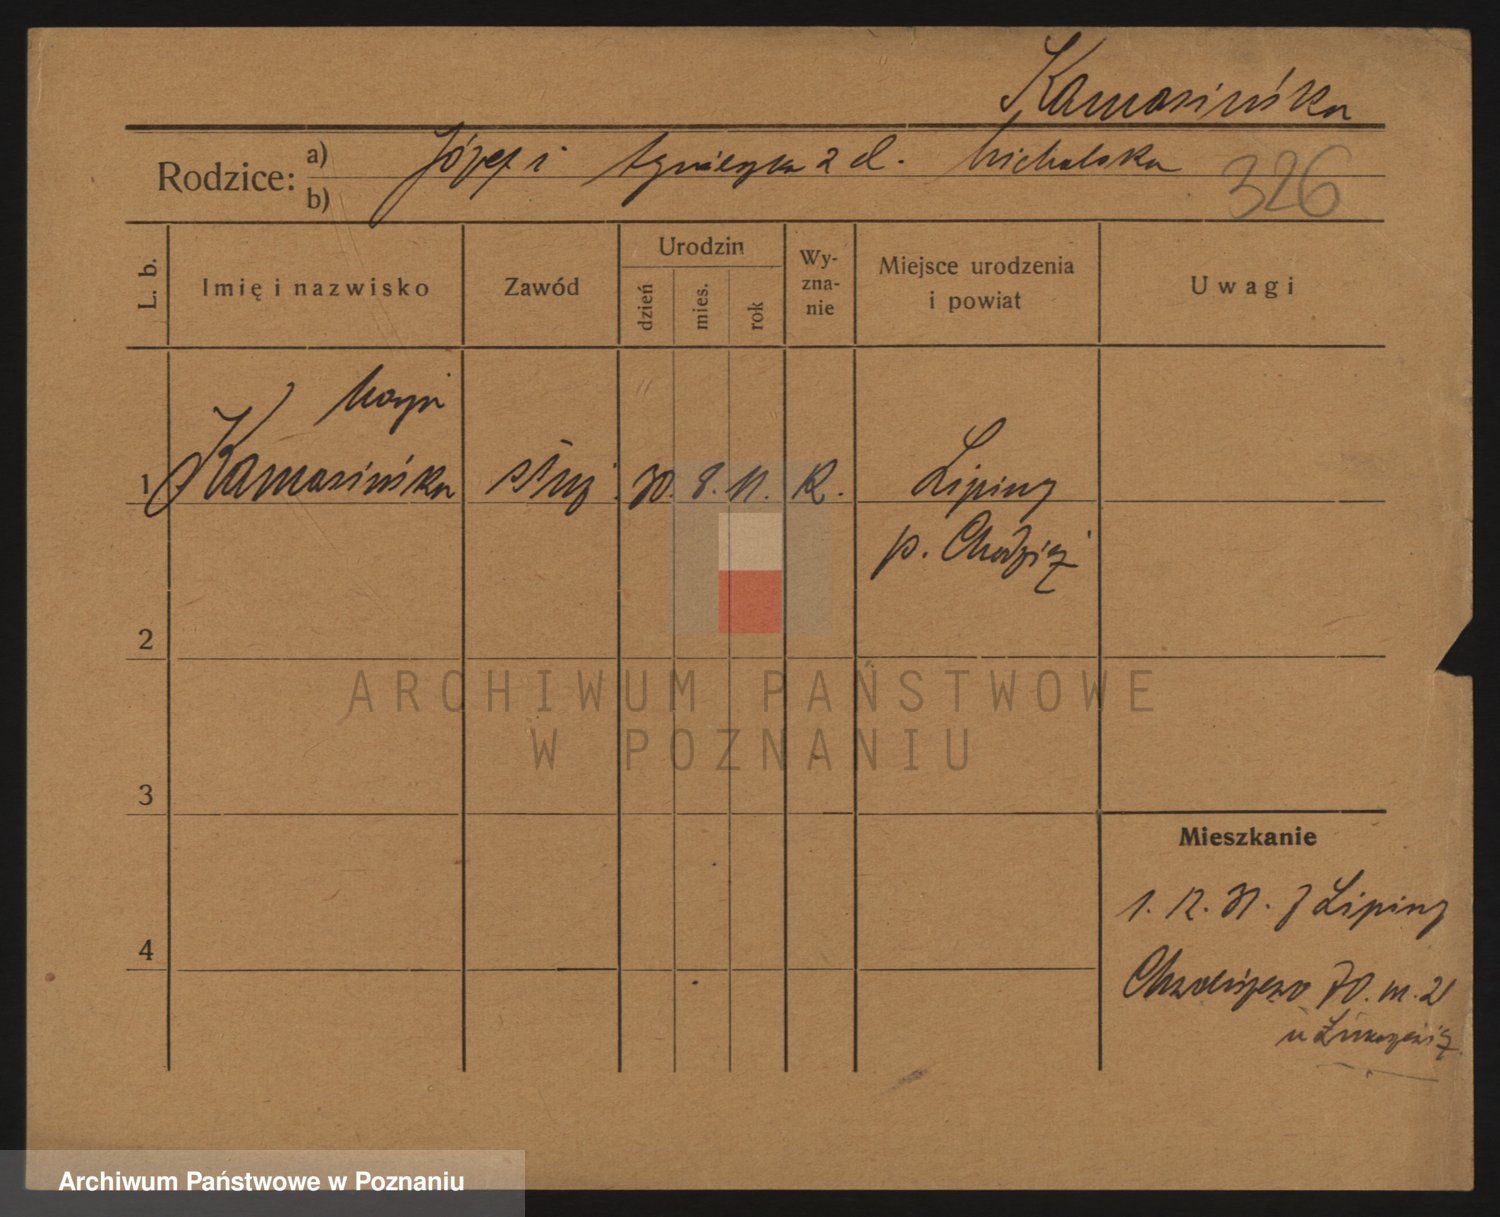 Kamasińska
Rodzice: a) Józef i Agnieszka z d. Michalska
b)
326
L. b.
Imię i nazwisko
Zawód
Urodzin
dzień
mies.
rok
Wy-
zna-
nie
Miejsce urodzenia
i powiat
Uwagi
Marja
1 Kamasińska służ. 30. 8. 11. R. Lipiny
p. Chodzież
2
3
4
Mieszkanie
1. 12. 31. z Lipiny
70. m. 2
u
ARCHIWUM PAŃSTWOWE
W POZNANIU
Archiwum Państwowe w Poznaniu